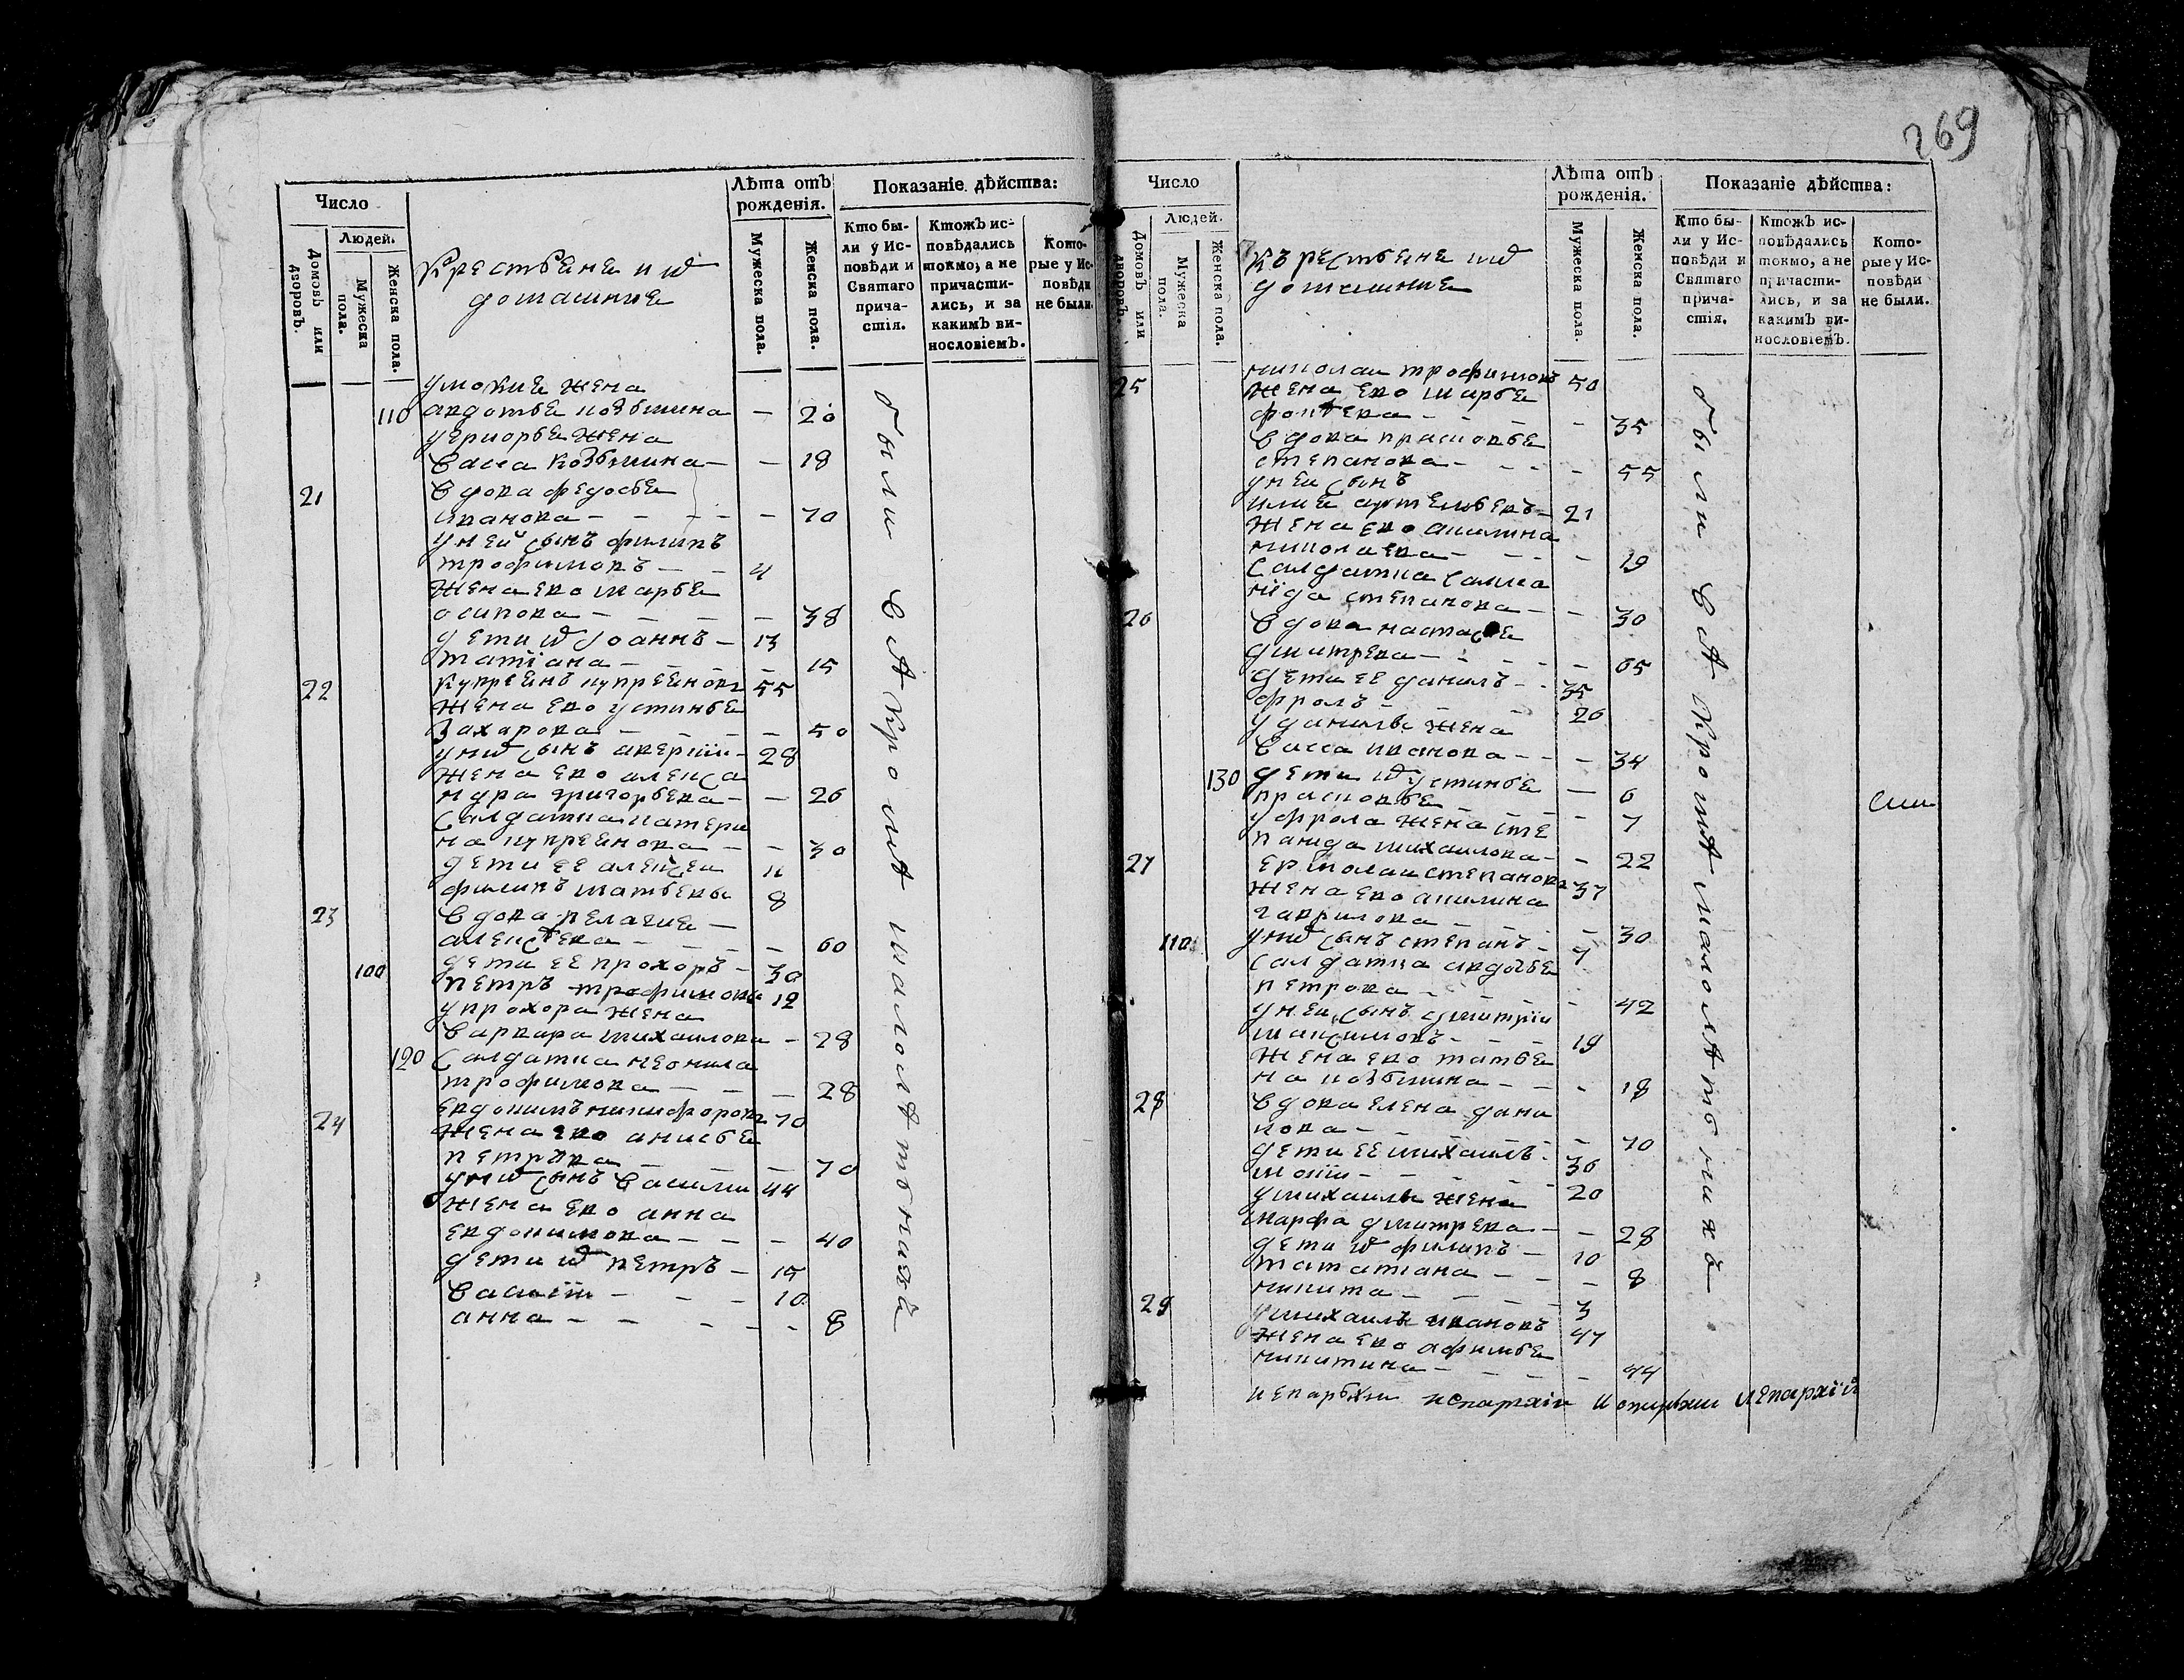 269
Число
Людей.
Домовъ или дворовъ.
Мужеска пола.
Женска пола.
Крестьяне и иѿ
домашние
Лѣта отъ рожденія.
Мужеска пола.
Женска пола.
Показаніе дѣйства:
Кто бы-
ли у Ис-
повѣди и
Святаго
прича-
стія.
Ктожъ ис-
повѣдались
токмо, а не
причасти-
лись, и за
какимъ ви-
нословіемъ.
Кото-
рые у Ис-
повѣди
не были.
жена
110 авдотья козьмина — 20
жена
васса козьмина — — 18
21 вдова федосья
иванова — — — — — 70
у ней сынъ филипъ
трофимовъ — — 4
жена ево марья
осипова — — — — 38
дети иѿ іоаннъ — 13
татіана — — — — 15
22 купреянъ купреяновъ 55
жена ево устинья
захарова — — — 50
у ниѿ сынъ аверкіи — 28
жена ево алекса
ндра григорьева — — 26
салдатка катери
на купреянова — — 30
дети ее алексеи 11
филипъ матвеевы 8
23 вдова пелагие —
алексѣева — — — — 60
100 дети ее прохоръ — 30
петръ трофимовы 12
у прохора жена
варвара михаилова — 28
120 салдатка неонила
трофимова — — — 28
24 евдокимъ никифоровъ 70
жена ево анисья
петрова — — — 70
у ниѿ сынъ василии 44
жена ево анна
евдокимова — — — 40
дети иѿ петръ — 15
— — — 10
анна — — — — — 8
были вся кроме малолѣтьнихъ
Число
Людей.
Домовъ или дворовъ.
Мужеска пола.
Женска пола.
Къресьтьяне иѿ
домашние
Лѣта отъ рожденія.
Мужеска пола.
Женска пола.
Показаніе дѣйства:
Кто бы-
ли у Ис-
повѣди и
Святаго
прича-
стія.
Ктожъ ис-
повѣдались
токмо, а не
причасти-
лись, и за
какимъ ви-
нословіемъ.
Кото-
рые у Ис-
повѣди
не были.
25 николаи трофимовъ 50
жена ево марья
фокѣева — — — 35
вдова прасковья
степанова — — — — 55
у неи сынъ
илия артемьевъ — 21
жена ево акилина
николаева — — — — 19
салдатка салма
нида степанова — — 30
26 вдова настасья
дмитрева — — — — 65
дети ее данилъ — — 35
фролъ — — — 26
у данилы жена
васса иванова — — — 34
130 дети иѿ устинья — 6
прасковья — — — 7
у фрола жена сте
панида михаилова — — 22
27 ермолаи степановъ 37
жена ево акилина
гаврилова — — — 30
110 у ниѿ сынъ степанъ — 7
салдатка авдотья
петрова — — — — 42
у неи сынъ дмитріи
максимовъ — — — 19
жена ево татья
на козьмина — — — 18
28 вдова елена дани
лова — — — — 70
дети ее михаилъ — 36
мокіи — — — — 20
у михаилы жена
марфа дмитрева — — 28
дети иѿ филипъ — 10
тататіана — — — 8
никита — — — — 3
29 михаилъ ивановъ 47
жена ево афимья
никитина — — — — 44
были вся кроме малолѣтьнихъ
сии
иепарьхии иепархіи иепархіи